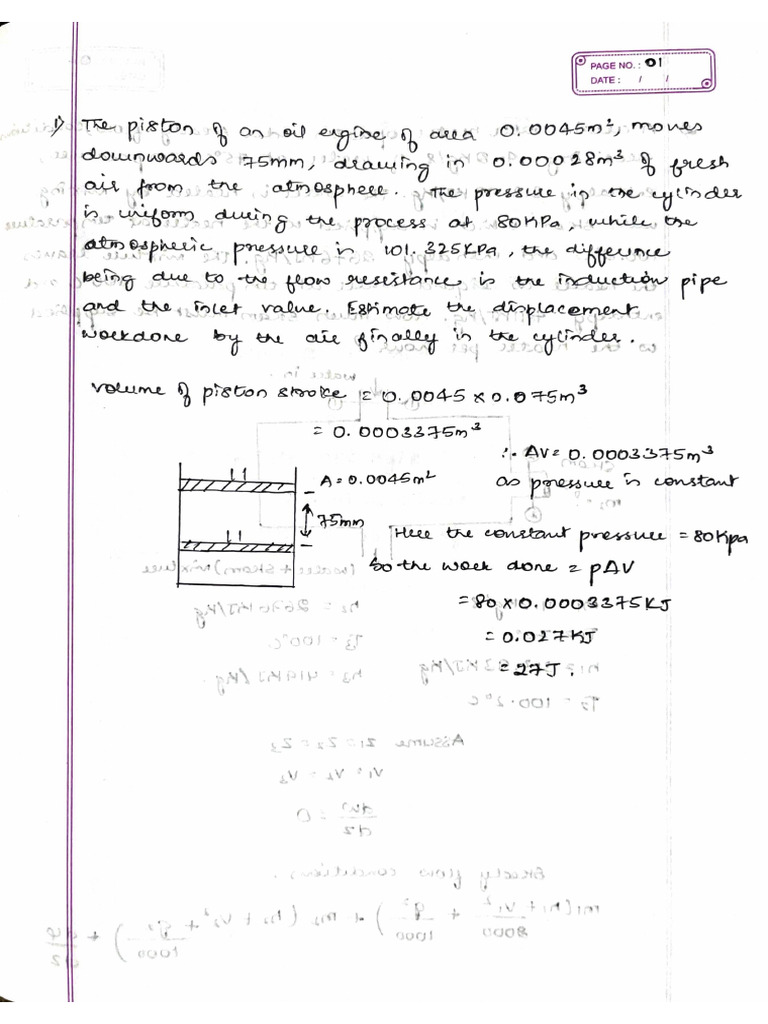 PAGE NO.: 01
DATE: / /
1) The piston of an oil engine of area 0.0045m², moves
downwards 75mm, drawing in 0.00028m³ of fresh
air from the atmosphere. The pressure in the cylinder
is uniform during the process at 80KPa, while the
atmospheric pressure is 101.325KPa, the difference
being due to the flow resistance in the induction pipe
and the inlet valve. Estimate the displacement
workdone by the air finally in the cylinder.
Volume of piston stroke = 0.0045 x 0.075m³
= 0.0003375m³
∴ ΔV = 0.0003375m³
as pressure is constant
A = 0.0045m²
75mm
Here the constant pressure = 80Kpa
So the work done = pΔV
= 80 x 0.0003375KJ
= 0.027KJ
= 27J.